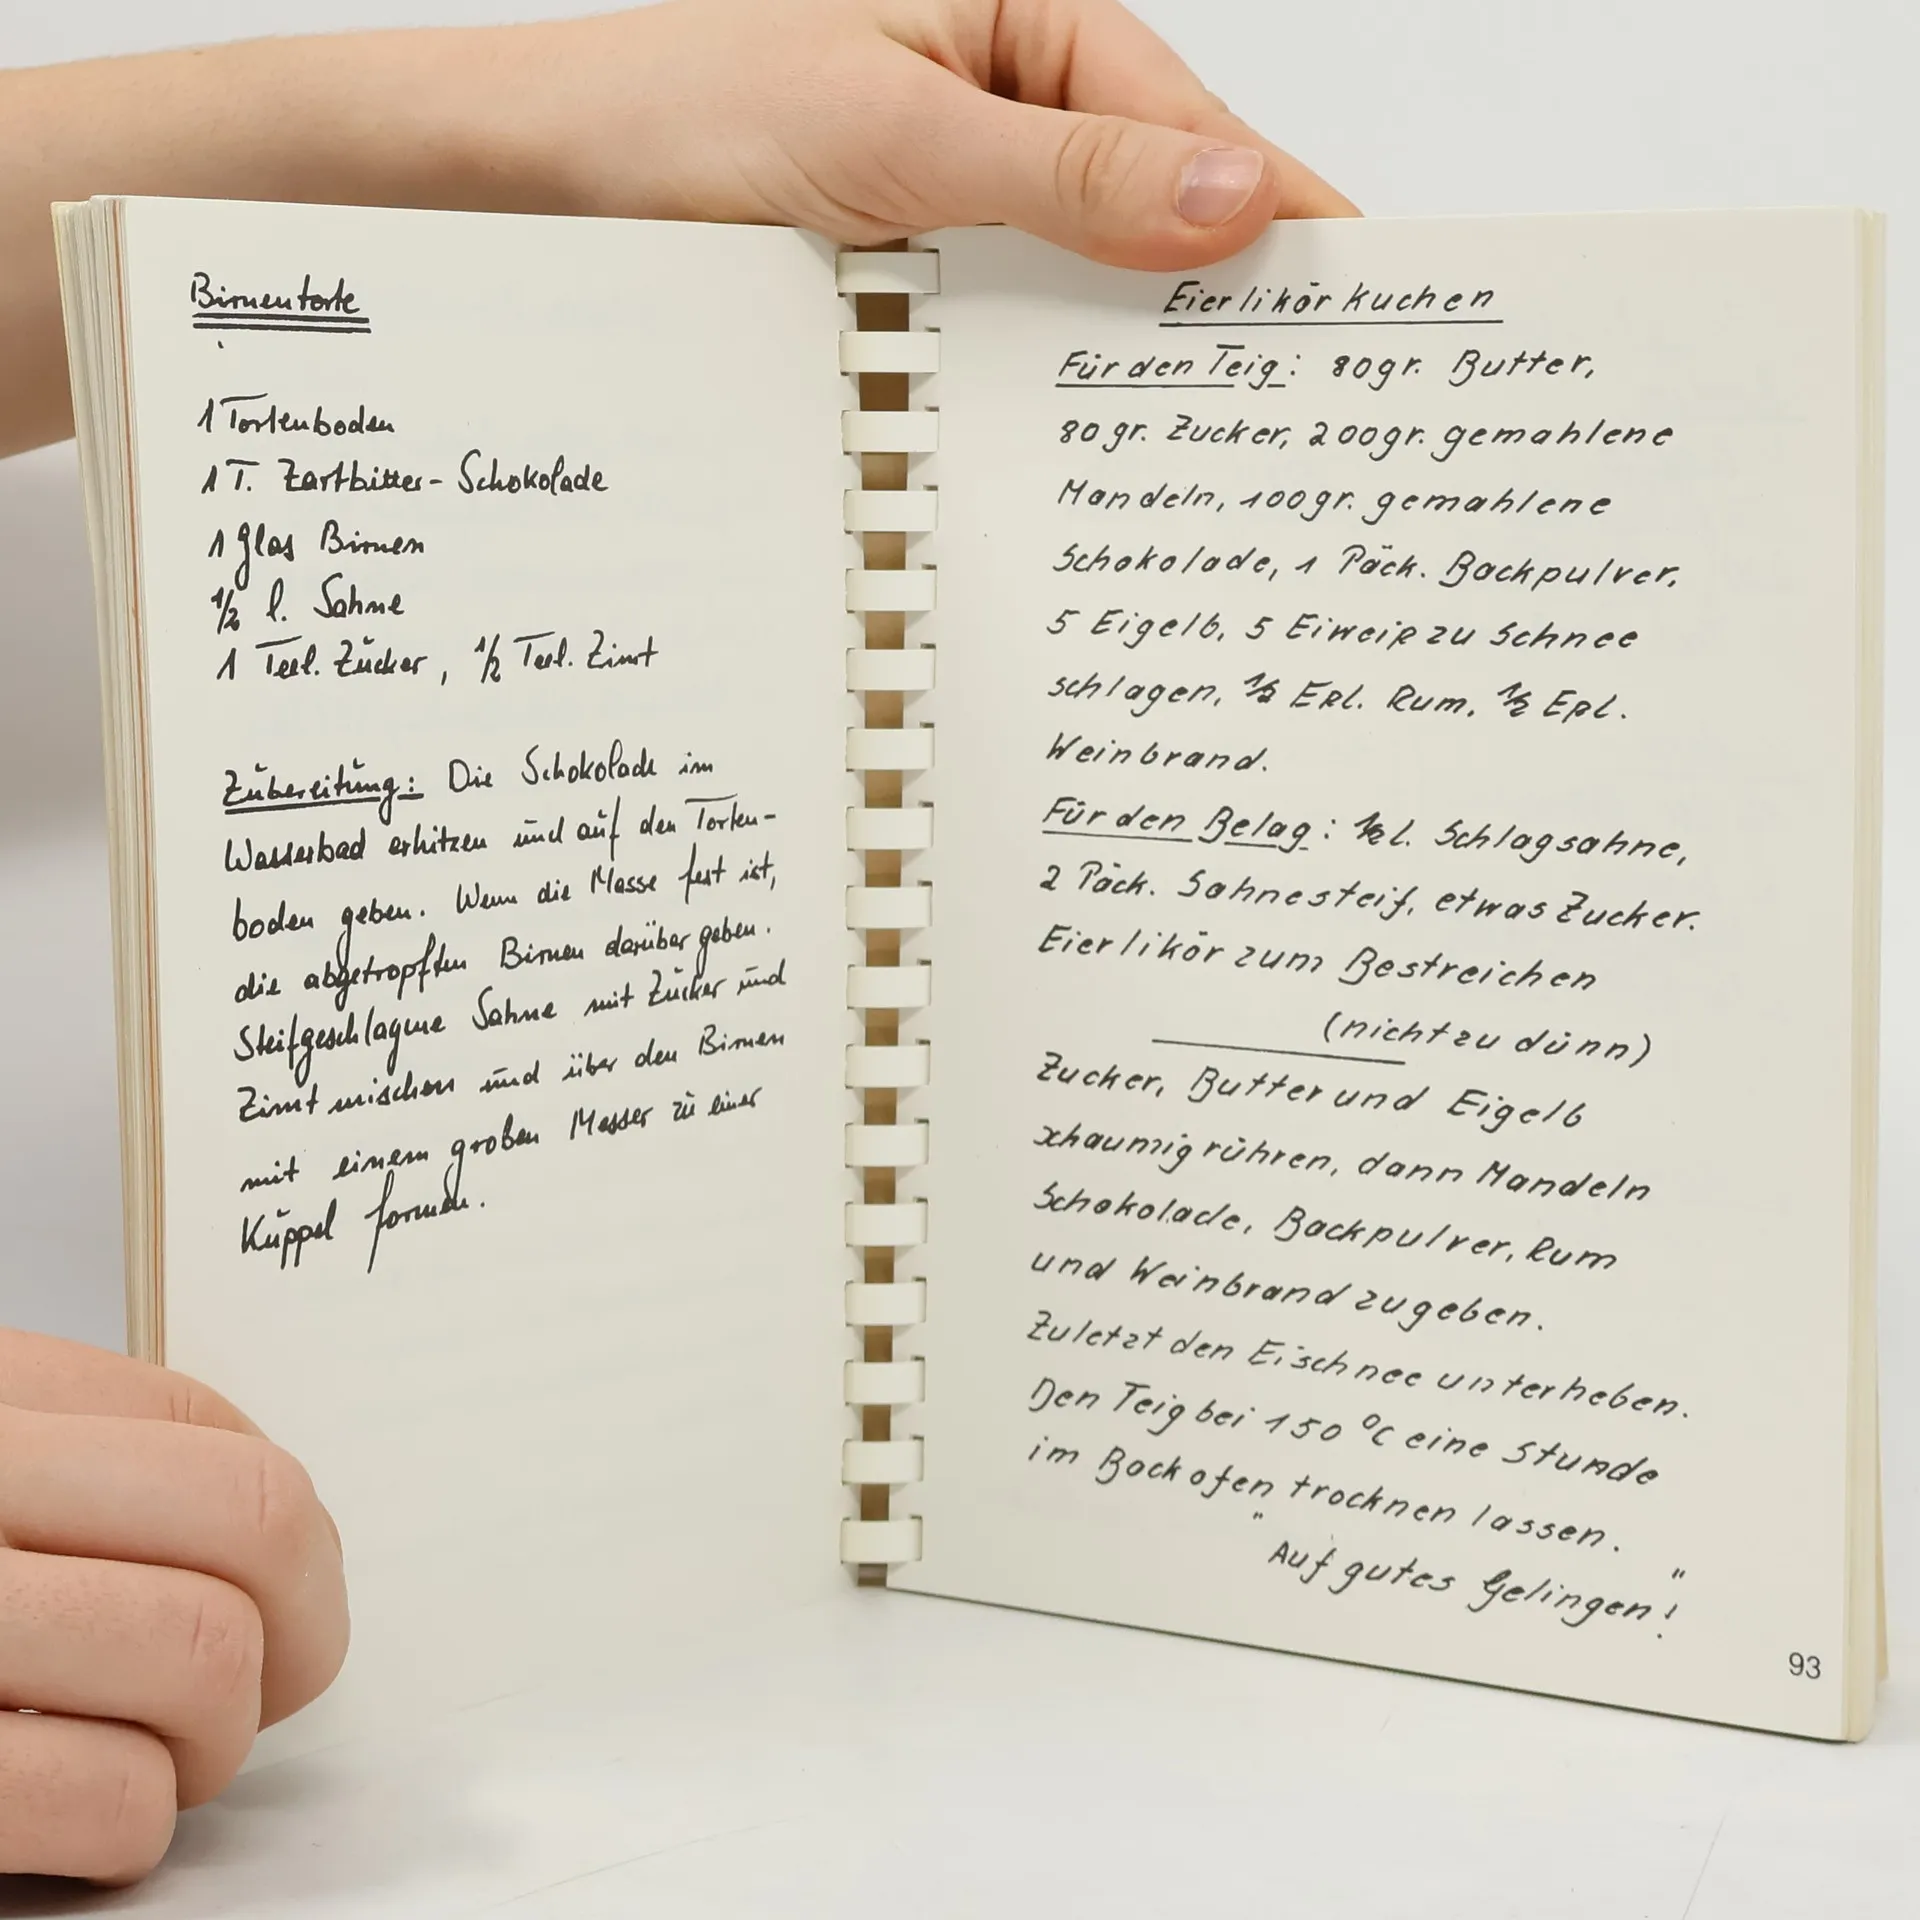 Birnentorte
1 Tortenboden
1 T. Zartbitter-Schokolade
1 Glas Birnen
1/2 l. Sahne
1 Teel. Zucker, 1/2 Teel. Zimt
Zubereitung: Die Schokolade im
Wasserbad erhitzen und auf den Torten-
boden geben. Wenn die Masse fest ist,
die abgetropften Birnen darüber geben.
Steifgeschlagene Sahne mit Zucker und
Zimt mischen und über den Birnen
mit einem groben Messer zu einer
Kuppel formen.
Eierlikör kuchen
Für den Teig: 80gr. Butter,
80gr. Zucker, 200gr. gemahlene
Mandeln, 100gr. gemahlene
Schokolade, 1 Päck. Backpulver,
5 Eigelb, 5 Eiweiß zu Schnee
schlagen, 1/2 Eßl. Rum, 1/2 Eßl.
Weinbrand.
Für den Belag: 1/2 l. Schlagsahne,
2 Päck. Sahnesteif, etwas Zucker.
Eierlikör zum Bestreichen
(nicht zu dünn)
Zucker, Butter und Eigelb
schaumig rühren, dann Mandeln
Schokolade, Backpulver, Rum
und Weinbrand zugeben.
Zuletzt den Eischnee unterheben.
Den Teig bei 150 °C eine Stunde
im Backofen trocknen lassen.
"Auf gutes Gelingen!"
93